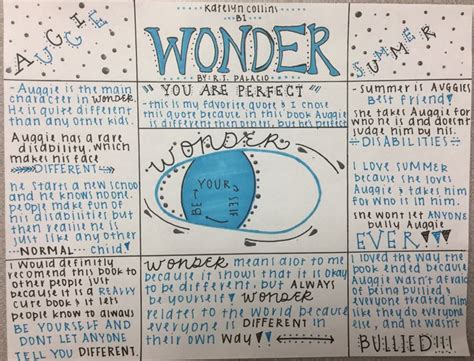 Katelyn Collins
B1
AUGGIE
WONDER
BY: R.J. PALACIO
SUMMER
- Auggie is the main
character in WONDER.
He is quite different
than any other kids.
Auggie has a rare
disability, which
makes his face
DIFFERENT
he starts a new school
and he knows no one.
people make fun of
his disabilities but
then realize he is
just like any other
-NORMAL--- child
"YOU ARE PERFECT"
-this is my favorite quote & I chose
this quote because in this book Auggie
is different then others, but he's perfect
WONDER
BE
YOUR
SELF
- summer is AUGGIES
Best friend!
she takes Auggie for
who he is and doesn't
judge him by his.
DISABILITIES
I love SUMMER
because she loves
Auggie & takes him
for who is in him.
she wont let ANYONE
bully Auggie
EVER!!!
I would definitly
recomend this book to
other people just
because it is a REALLY
cute book & it lets
people know to always
BE YOURSELF AND
DONT LET ANYONE
TELL YOU DIFFERENT.
WONDER means alot to me
because it shows that it is okay
to be different, but ALWAYS
be yourself! WONDER
relates to the world because
everyone is DIFFERENT in
their own way
I loved the way the
book ended because
Auggie wasn't afraid
of being bullied and
everyone treated him
like they do everyone
else and he wasn't
BULLIED!!!